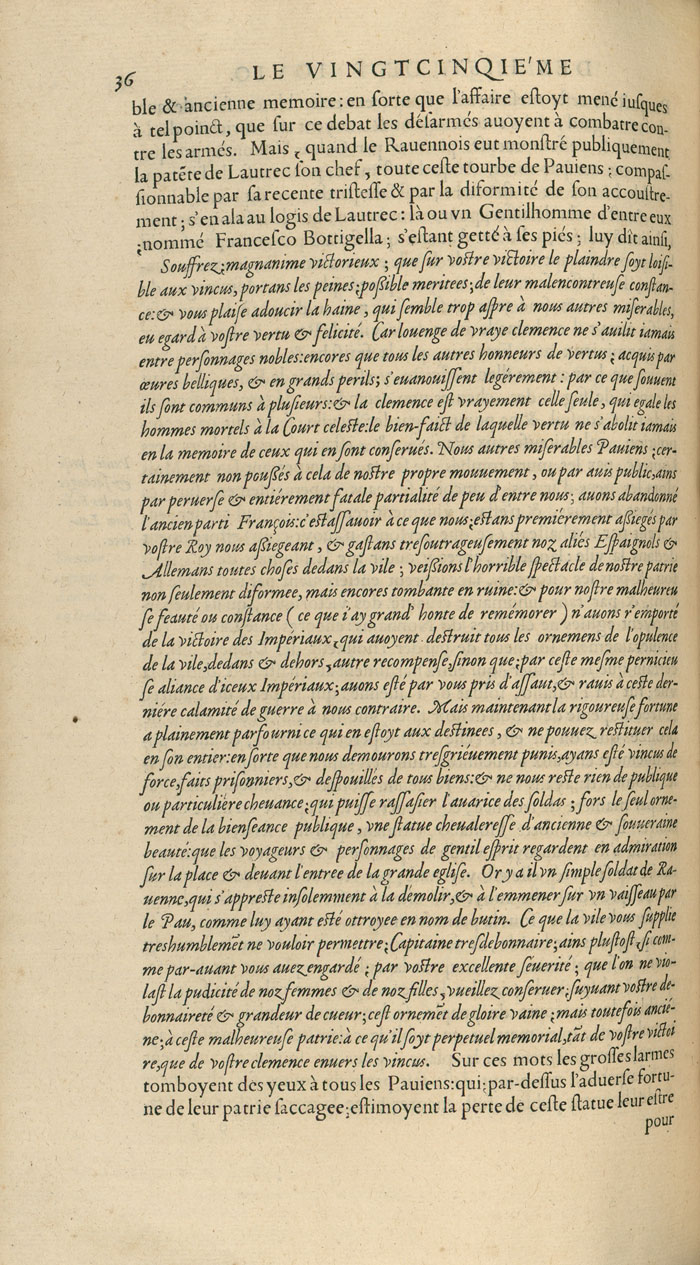 36 LE VINGTCINQIE'ME
ble & ancienne memoire: en ſorte que l'affaire eſtoyt mené iuſques
à tel poinct, que ſur ce debat les déſarmés auoyent à combatre con-
tre les armés. Mais , quand le Rauennois eut monſtré publiquement
la patẽte de Lautrec ſon chef, toute ceſte tourbe de Pauiens ; compaſ-
ſionnable par ſa recente triſteſſe & par la diformité de ſon accouſtre-
ment ; s'en ala au logis de Lautrec : là ou vn Gentilhomme d'entre eux
;nommé Franceſco Bottigella ; s'eſtant getté à ſes piés ; luy dît ainſi,
Souffrez ; magnanime victorieux ; que ſur voſtre victoire le plaindre ſoyt loiſi-
ble aux vincus, portans les peines ; poßible meritees ; de leur malencontreuſe conſtan-
ce: & vous plaiſe adoucir la haine, qui ſemble trop aſpre à nous autres miſerables,
eu egard à voſtre vertu & felicité. Car louenge de vraye clemence ne s'auilit iamais
entre perſonnages nobles: encores que tous les autres honneurs de vertus ; acquis par
œuures belliques, & en grands perils; s'euanouiſſent legérement : par ce que ſouuent
ils ſont communs à pluſieurs: & la clemence eſt vrayement celle ſeule, qui egale les
hommes mortels à la Court celeſte: le bien-faict de laquelle vertu ne s'abolit iamais
en la memoire de ceux qui en ſont conſerués. Nous autres miſerables Pauiens ; cer-
tainement non pouſſés à cela de noſtre propre mouuement, ou par auis public, ains
par peruerſe & entiérement fatale partialité de peu d'entre nous; auons abandonné
l'ancien parti François: c'eſt aſſauoir à ce que nous ; eſtans premiérement aßiegés par
voſtre Roy nous aßiegeant, & gaſtans treſoutrageuſement noz aliés Eſpaignols &
Allemans toutes choſes dedans la vile ; veißions l'horrible ſpectacle de noſtre patrie
non ſeulement diformee, mais encores tombante en ruine: & pour noſtre malheureu
ſe feauté ou conſtance ( ce que i'ay grand' honte de remémorer ) n'auons r'emporté
de la victoire des Impériaux, qui auoyent deſtruit tous les ornemens de l'opulence
de la vile, dedans & dehors, autre recompenſe, ſinon que ; par ceſte meſme pernicieu
ſe aliance d'iceux Impériaux; auons eſté par vous pris d'aſſaut, & rauis à ceſte der-
niére calamité de guerre à nous contraire. Mais maintenant la rigoureuſe fortune
a plainement parfourni ce qui en eſtoyt aux deſtinees, & ne pouuez reſtituer cela
en ſon entier: en ſorte que nous demourons treſgriéuement punis, ayans eſté vincus de
force, faits priſonniers, & deſpouillés de tous biens: & ne nous reſte rien de publique
ou particuliére cheuance ; qui puiſſe raſſaſier l'auarice des ſoldas ; fors le ſeul orne-
ment de la bienſeance publique, vne ſtatue cheualereſſe d'ancienne & ſouueraine
beauté: que les voyageurs & perſonnages de gentil eſprit regardent en admiration
ſur la place & deuant l'entree de la grande egliſe. Or y a il vn ſimple ſoldat de Ra-
uenne, qui s'appreſte inſolemment à la démolir, & à l'emmener ſur vn vaiſſeau par
le Pau, comme luy ayant eſté ottroyee en nom de butin. Ce que la vile vous ſupplie
treshumblemẽt ne vouloir permettre; Capitaine treſdebonnaire; ains pluſtoſt, ſi com-
me par-auant vous auez engardé ; par voſtre excellente ſeuerité ; que l'on ne vio-
laſt la pudicité de noz femmes & de noz filles, vueillez conſeruer ; ſuyuant voſtre de-
bonnaireté & grandeur de cueur; ceſt ornemẽt de gloire vaine ; mais toutefois ancié-
ne; à ceſte malheureuſe patrie: à ce qu'il ſoyt perpetuel memorial, tãt de voſtre victoi
re, que de voſtre clemence enuers les vincus. Sur ces mots les groſſes larmes
tomboyent des yeux à tous les Pauiens: qui ; par-deſſus l'aduerſe fortu-
ne de leur patrie ſaccagee; eſtimoyent la perte de ceſte ſtatue leur eſtre
pour